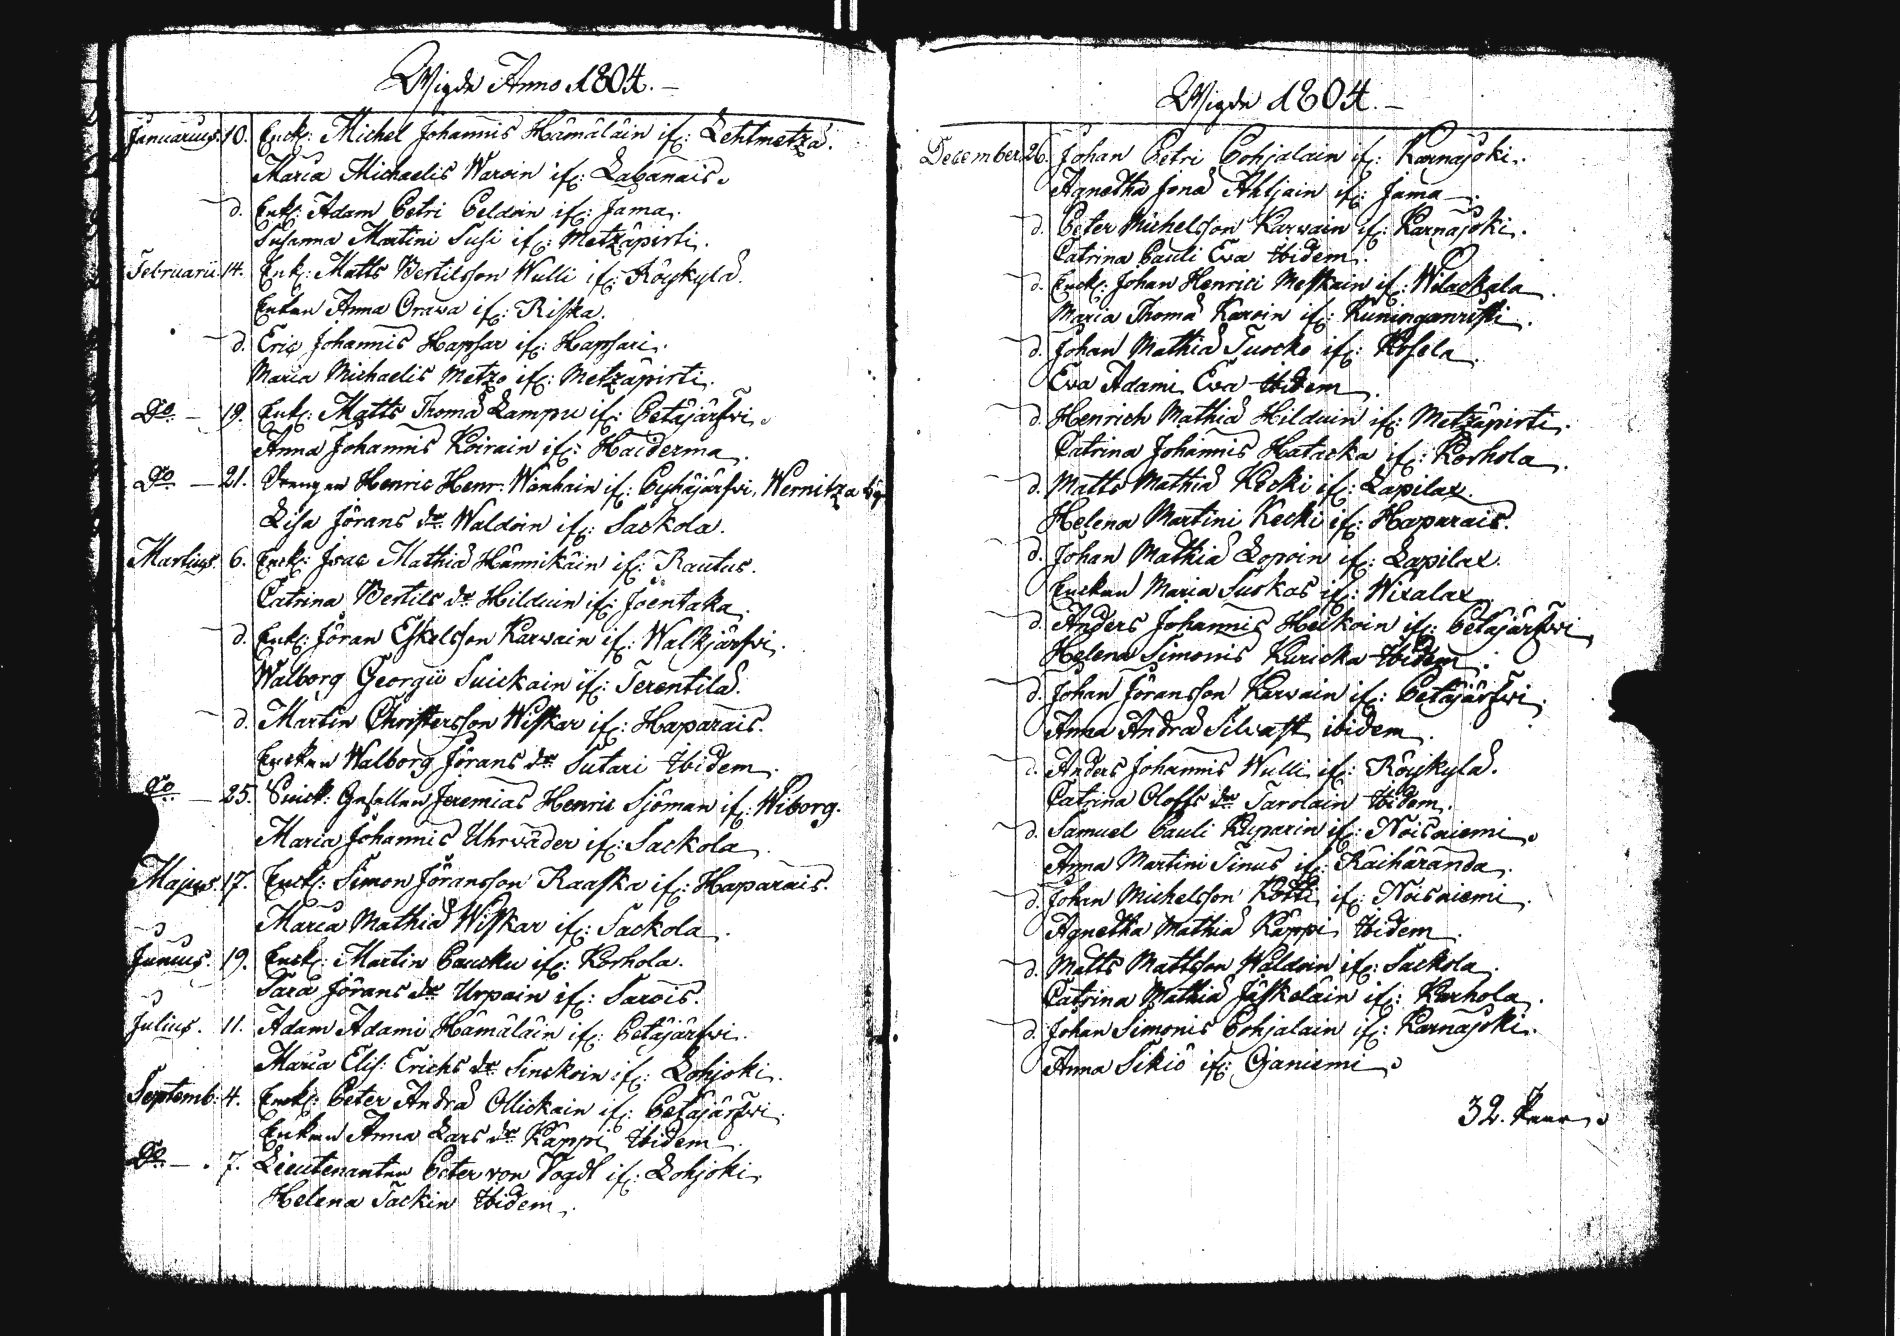 Wigde Anno 1804.
Januarius. 10. Enck: Michel Johannis Hämäläin if: Lehtmetzä.
Maria Michaelis Waroin if: Labanais.
d. Enk: Adam Petri Peldoin if: Jama.
Susanna Martini Susi if: Metzäpirti.
Februarii. 14. Enk: Matts Bertilsson Wulli if: Röiskylä.
Enkan Anna Orawa if: Riska.
d. Eric Johannis Hapsar if: Hapsari.
Maria Michaelis Metzo if: Metzäpirti.
Do — 19. Enk: Matts Thomæ Lampu if: Petäjärfwi.
Anna Johannis Koirain if: Haiderma.
Do — 21. Drengen Henric Henr: Wänhain if: Pyhäjärfwi, Wernitza By
Lisa Jörans dr Waldoin if: Sackola.
Martius. 6. Enck: Isac Mathiæ Hännikäin if: Rautus.
Catrina Bertils dr Hilduin if: Joentaka.
d. Enk: Jöran Eskelsson Karwain if: Walkjärfwi.
Walborg Georgii Suickain if: Terentilä.
d. Martin Christersson Wiskar if: Haparais.
Enckan Walborg Jörans dr Sutari Ibidem.
Do — 25. Snick: Gesällen Jeremias Henric Sjöman if: Wiborg.
Maria Johannis Uhrwäder if: Sackola.
Majus. 17. Enck: Simon Jöransson Raaska if: Haparais.
Maria Mathiæ Wiskar if: Sackola.
Junius. 19. Enck: Martin Paucku if: Korhola.
Sara Jörans dr Urpain if: Sarois.
Julius. 11. Adam Adami Hämäläin if: Petäjärfwi.
Maria Elis: Erichs dr Sinckoin if: Lohjoki.
Septemb: 4. Enck: Peter Andræ Ollickain if: Petäjärfwi.
Enkan Anna Lars dr Käppi Ibidem.
Do — . 7. Lieutenanten Peter von Vogdt if: Lohjoki.
Helena Tackin Ibidem.
Wigde 1804.
December 26. Johan Petri Pohjalain if: Karnajoki.
Agnetha Jonæ Ahtjain if: Jama.
d. Peter Michelsson Karwain if: Karnajoki.
Catrina Pauli Eva Ibidem.
d. Enck: Johan Henrici Meskain if: Wilackala.
Maria Thomæ Karoin if: Kuninganristi.
d. Johan Mathiæ Tuocko if: Kosela.
Eva Adami Eva Ibidem.
d. Henrich Mathiæ Hilduin if: Metzäpirti.
Catrina Johannis Hatacka if: Korhola.
d. Matts Mathiæ Kecki if: Lapilax.
Helena Martini Kecki if: Haparais.
d. Johan Mathiæ Lopoin if: Lapilax.
Enckan Maria Suokas if: Wixalax.
d. Anders Johannis Heikoin if: Petäjärfwi.
Helena Simonis Kuricka Ibidem.
d. Johan Jöransson Karwain if: Petäjärfwi.
Anna Andræ Silvast ibidem.
d. Anders Johannis Wulli if: Röiskylä.
Catrina Oloffs dr Tarolain Ibidem.
d. Samuel Pauli Kuparin if: Noisniemi.
Anna Martini Sinus if: Räihärända.
d. Johan Michelsson Kotti if: Noisniemi.
Agnetha Mathiæ Käppi Ibidem.
d. Matts Mattsson Waldoin if: Sackola.
Catrina Mathiæ Jäskeläin if: Karhola.
d. Johan Simonis Pohjalain if: Karnajoki.
Anna Sikiö if: Ojaniemi.
32. Paar.